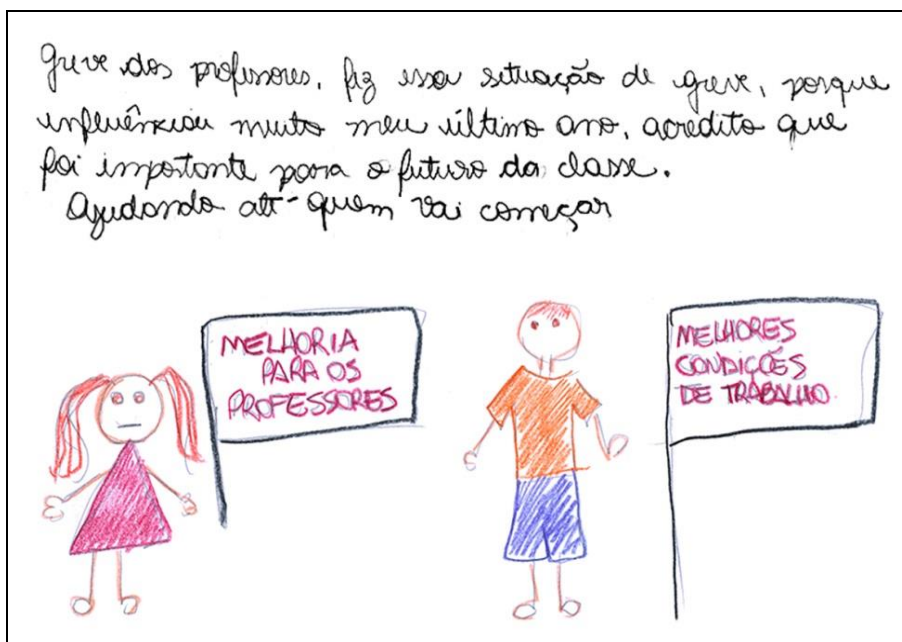 Greve dos professores, fiz essa situação de greve, porque
influênciou muito meu último ano, acredito que
foi importante para o futuro da classe.
Ajudando até quem vai começar
MELHORIA
PARA OS
PROFESSORES
MELHORES
CONDIÇÕES
DE TRABALHO